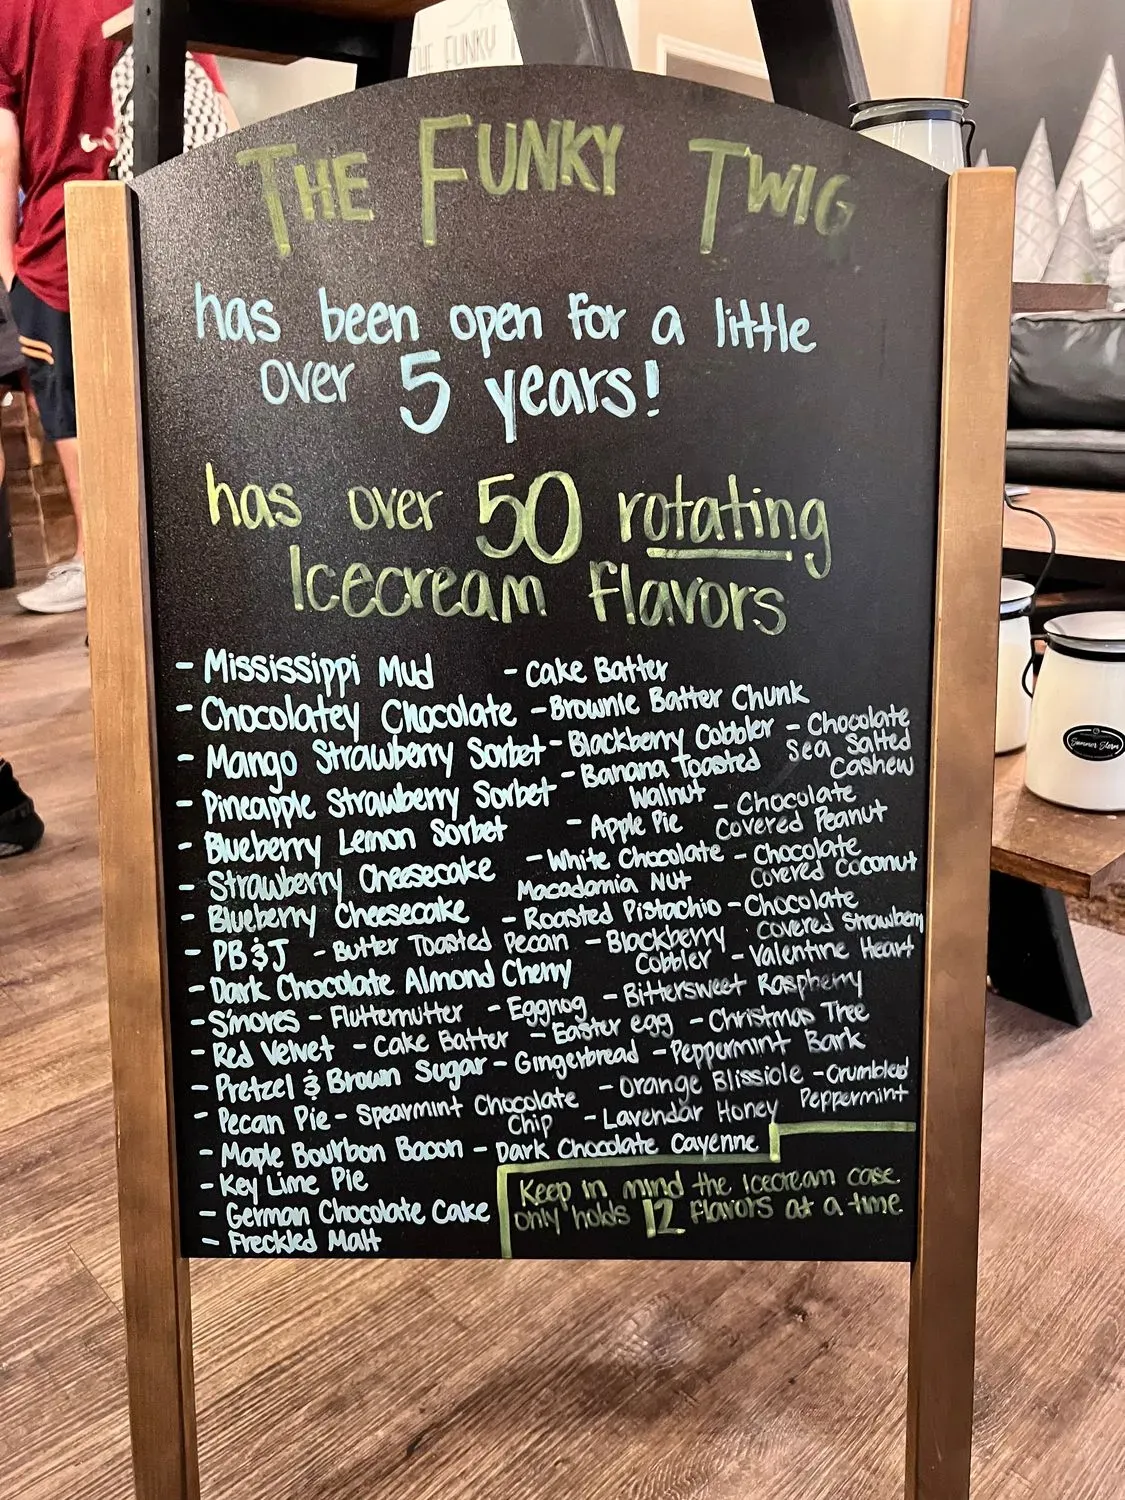 THE FUNKY
THE FUNKY TWIG
has been open for a little
over 5 years!
has over 50 rotating
Icecream flavors
- Mississippi Mud - Cake Batter
- Chocolatey Chocolate - Brownie Batter Chunk
- Mango Strawberry Sorbet - Blackberry Cobbler - Chocolate
Sea Salted
Cashew
- Pineapple Strawberry Sorbet - Banana Toasted
Walnut - Chocolate
Covered Peanut
- Blueberry Lemon Sorbet - Apple Pie
- Strawberry Cheesecake - White Chocolate - Chocolate
Macadamia Nut Covered Coconut
- Blueberry Cheesecake - Roasted Pistachio - Chocolate
Covered Strawberry
- PB & J - Butter Toasted Pecan - Blackberry
Cobbler - Valentine Heart
- Dark Chocolate Almond Cherry - Bittersweet Raspberry
- S'mores - Flutternutter - Eggnog
- Red Velvet - Cake Batter - Easter egg - Christmas Tree
- Pretzel & Brown Sugar - Gingerbread - Peppermint Bark
- Pecan Pie - Spearmint Chocolate
Chip - Orange Blissiole - Crumbled
Peppermint
- Lavendar Honey
- Maple Bourbon Bacon - Dark Chocolate Cayenne
- Key Lime Pie
- German Chocolate Cake
- Freckled Malt
Keep in mind the icecream case
only holds 12 flavors at a time